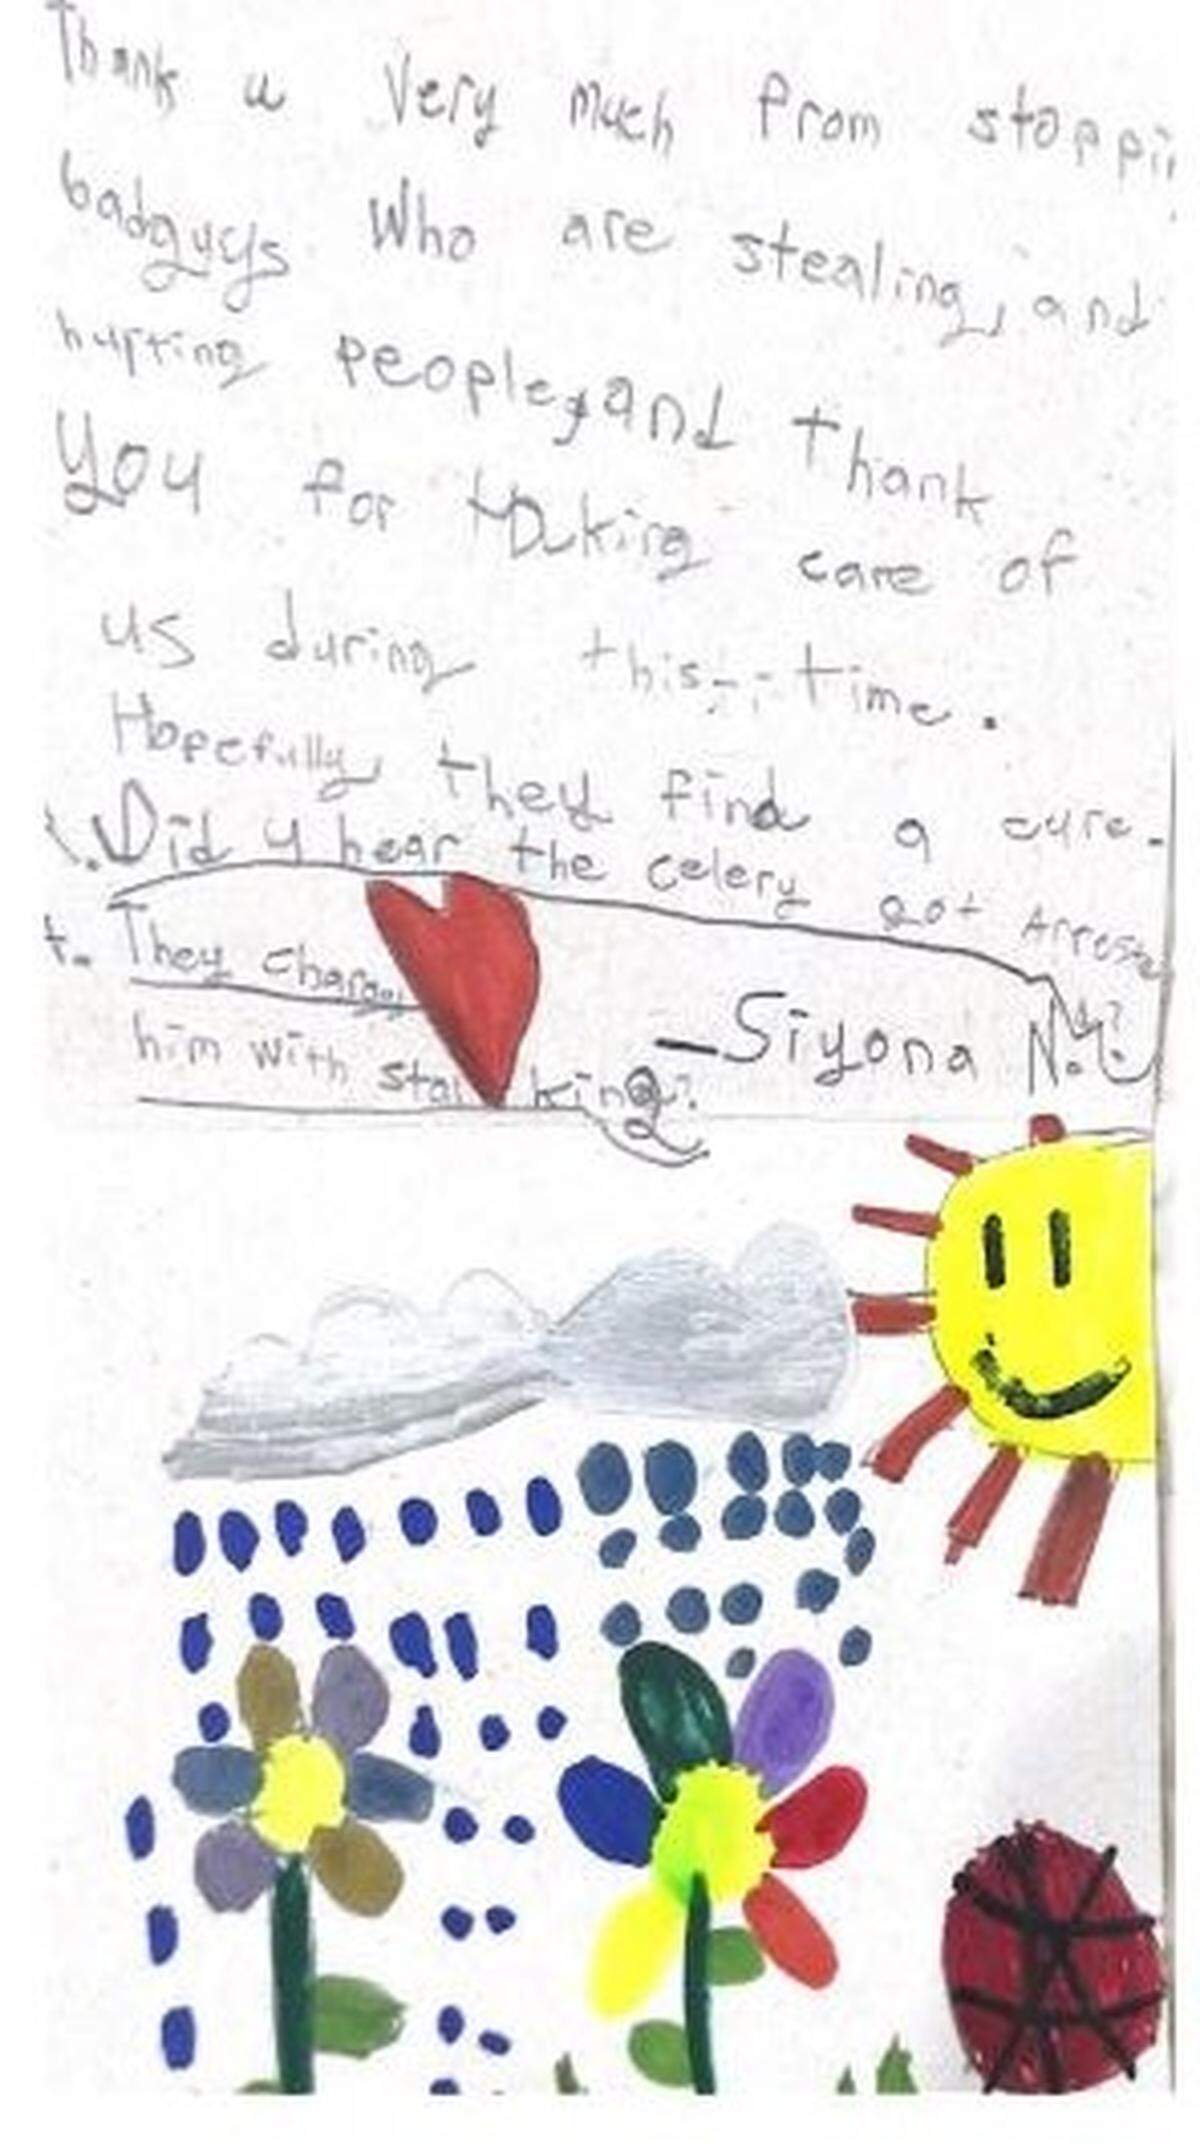 Thank u Very much from stoppi
badguys Who are stealing, and
hurting people, and thank
You for taking care of
us during this -- time.
Hopefully they find a cure.
1. Did y hear the celery got Arreste
t. They charge
him with stalking?
— Siyona N.